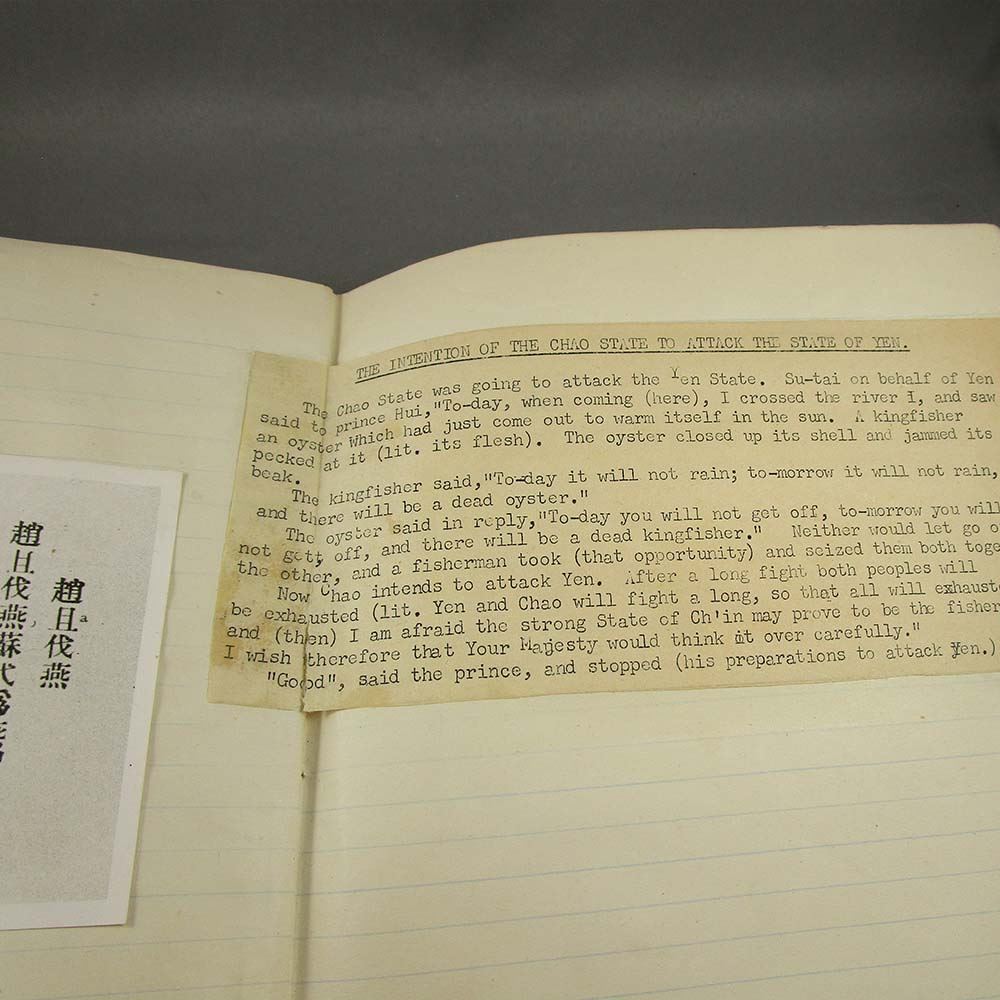 趙且伐燕
趙且伐燕蘇代爲燕
THE INTENTION OF THE CHAO STATE TO ATTACK THE STATE OF YEN.
The Chao State was going to attack the Yen State. Su-tai on behalf of Yen
said to prince Hui,"To-day, when coming (here), I crossed the river I, and saw
an oyster Which had just come out to warm itself in the sun. A kingfisher
pecked at it (lit. its flesh). The oyster closed up its shell and jammed its
beak.
The kingfisher said,"To-day it will not rain; to-morrow it will not rain,
and there will be a dead oyster."
The oyster said in reply,"To-day you will not get off, to-morrow you will
not gett off, and there will be a dead kingfisher." Neither would let go o
the other, and a fisherman took (that opportunity) and seized them both toge
Now Chao intends to attack Yen. After a long fight both peoples will
be exhausted (lit. Yen and Chao will fight a long, so that all will exhauste
and (then) I am afraid the strong State of Ch'in may prove to be the fisher
I wish therefore that Your Majesty would think it over carefully."
"Good", said the prince, and stopped (his preparations to attack Yen.)